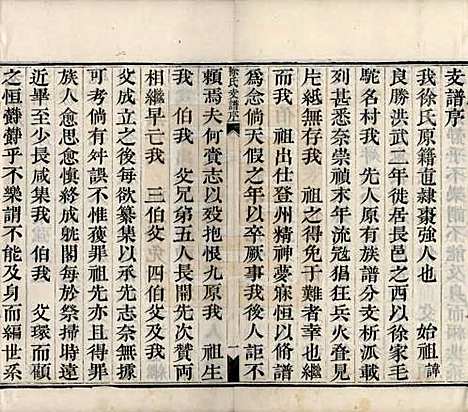 支譜序
我徐氏原籍直隸棗強人也　始祖諱
良勝洪武二年徙居長邑之西以徐家毛
駝名村我　先人原有族譜分支析派載
列甚悉奈崇禎末年流冦猖狂兵火疊見
片紙無存我　祖之得免于難者幸也繼
而我　祖出仕登州精神夢寐恒以脩譜
爲念倘天假之年以卒厥事我後人詎不
徐氏支譜序　一
賴焉夫何賫志以殁抱恨九原我　祖生
我　伯我　父兄第五人長閣先次贊兩
相繼早亡我　三伯父　四伯父及我
父成立之後每欲纂集以承先志奈無據
可考倘有舛誤不惟獲罪祖先亦且得罪
族人愈思愈慎終成骯閣每於祭掃時遠
近畢至少長咸集我　伯我　父環而顧
之恒欝欝乎不樂謂不能及身而編世系